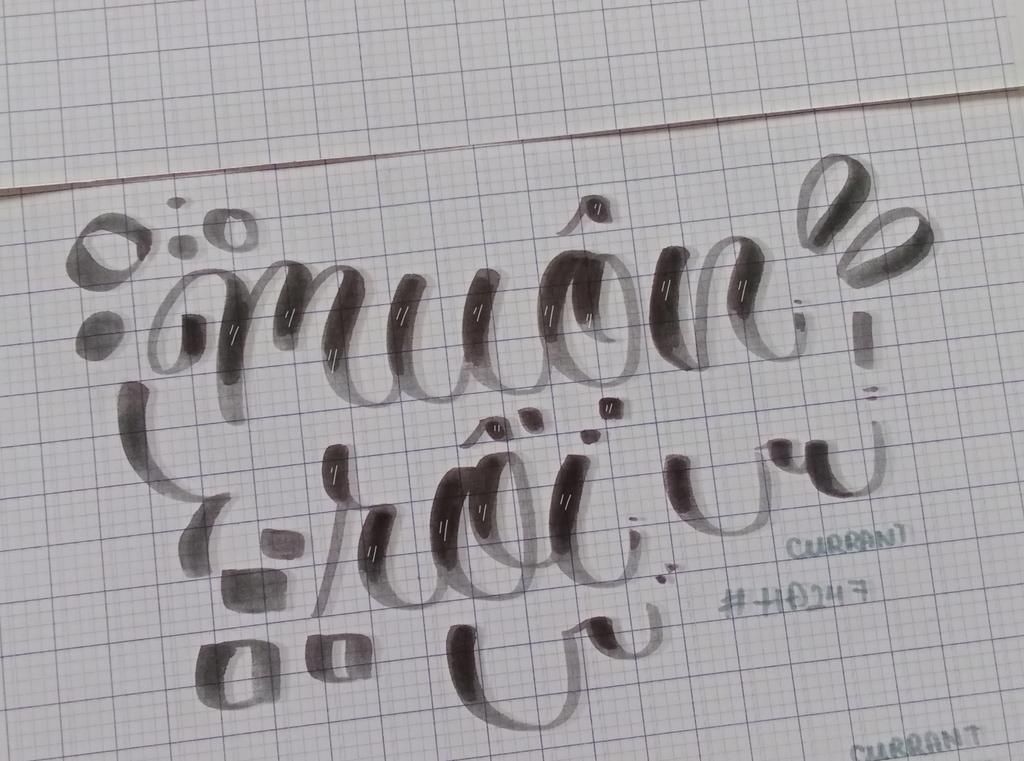 muộn
rồi
CURRANT
#HB247
CURRANT